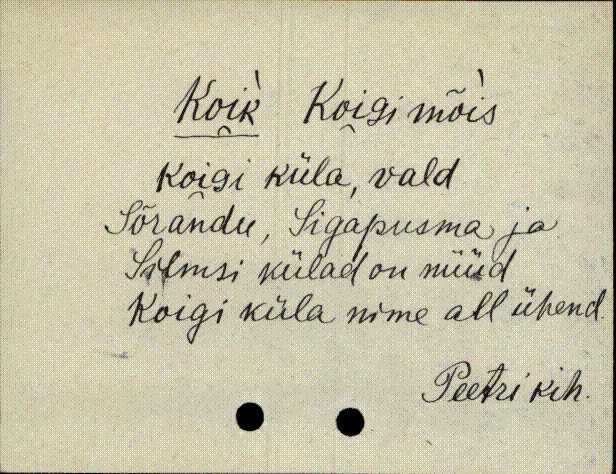 Koi`k Koigi mõi`s
Koigi küla, vald
Sõrandu, Sigapusma ja
Silmsi külad on nüüd
Koigi küla nime all ühend.
Peetri kih.